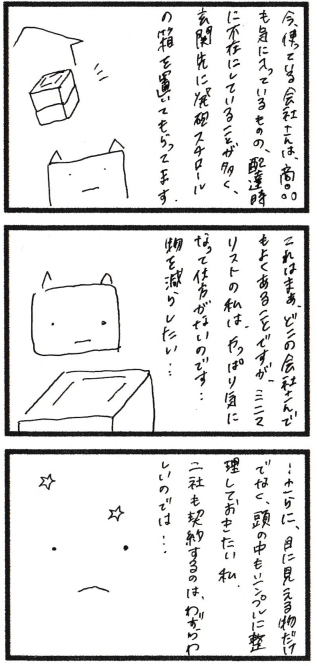 今、使っている会社さんは、商品
も気に入っているものの、配達時
に不在にしていることが多く、
玄関先に発砲スチロール
の箱を置いてもらってます。
これはまぁ、どこの会社さんで
もよくあることですが、ミニマ
リストの私は、やっぱり気に
なって仕方がないのです…
物を減らしたい…
…さらに、目に見える物だけ
でなく、頭の中もシンプルに整
理しておきたい私。
二社も契約するのは、わずらわ
しいのでは…